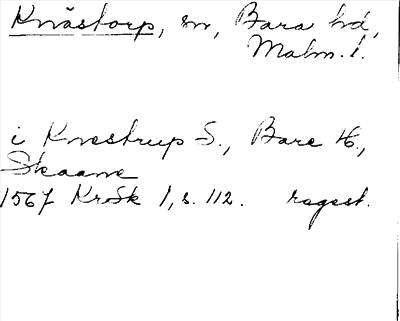 Knästorp, sn, Bara hd,
Malm. l.
i Knestrup S., Bare H.,
Skaane
1567 KrSk 1, s. 112. regest.